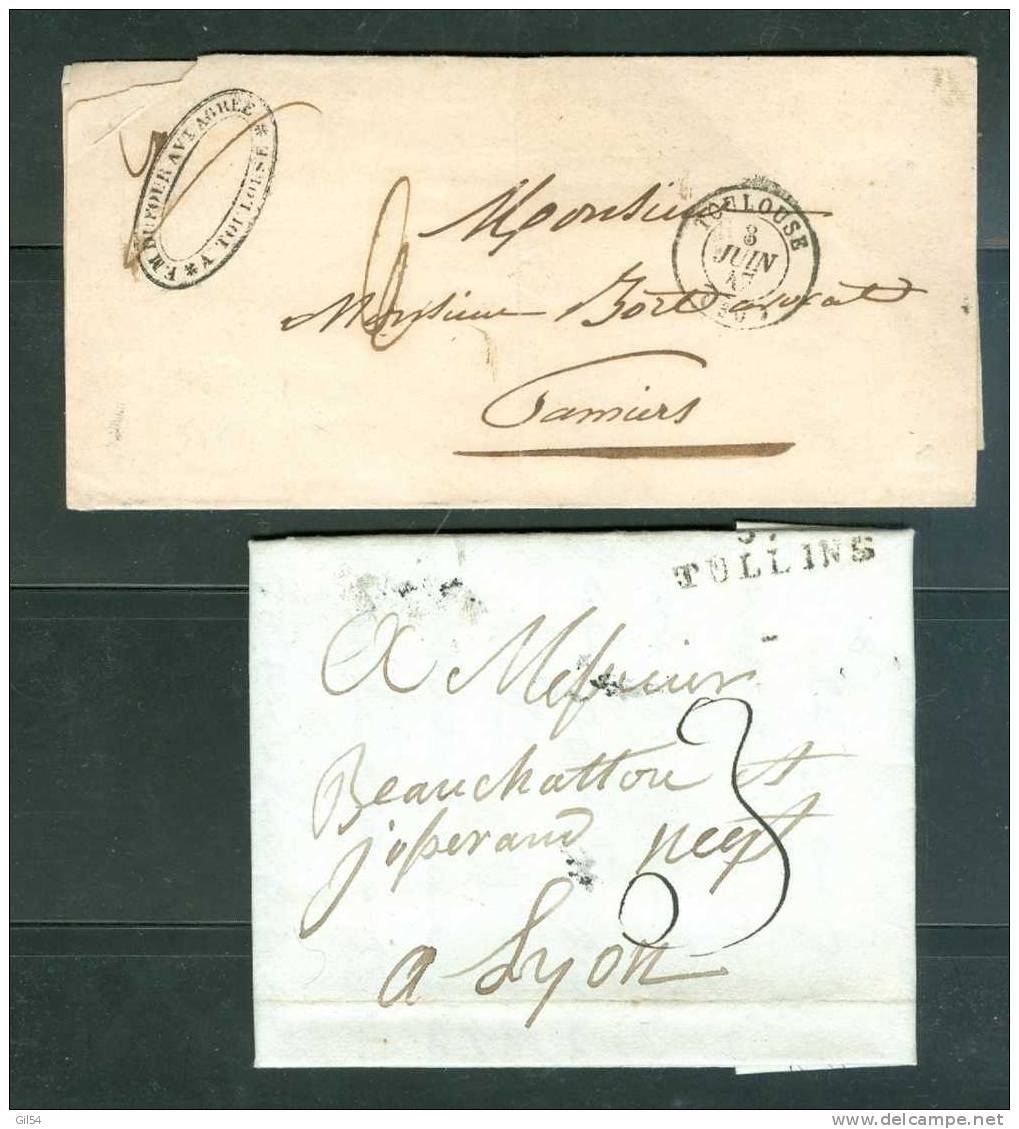 EM. DUFOUR AVT AGRÉÉ
* A TOULOUSE *
TOULOUSE
8
JUIN
47
(30)
Monsieur
Monsieur Bort avocat
Pamiers
TULLINS
A Messieurs
Beauchatton et
josserand negt
3
a Lyon
Gil54
www.delcampe.net